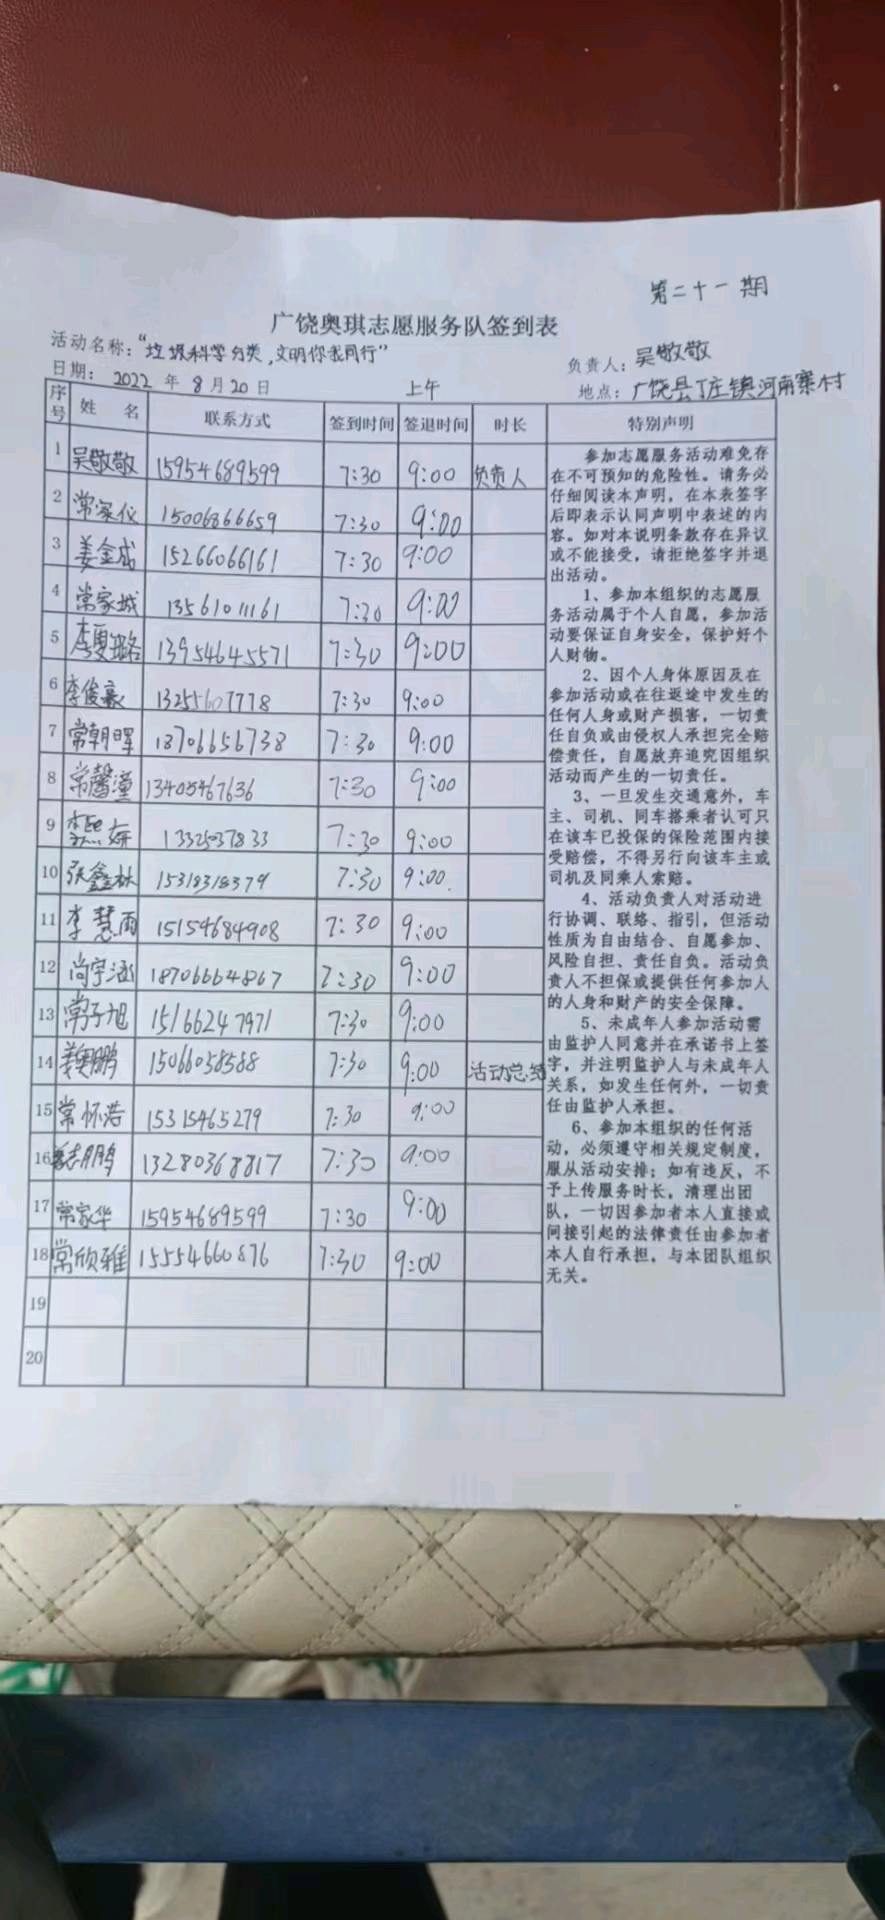 第二十一期
广饶奥琪志愿服务队签到表
活动名称："垃圾科学分类，文明你我同行" 负责人：吴敬敬
日期：2022年8月20日 上午 地点：广饶县丁庄镇河南寨村
序号 姓名 联系方式 签到时间 签退时间 时长 特别声明
1 吴敬敬 15954689599 7:30 9:00 负责人
2 常家仪 15006866659 7:30 9:00
3 姜金成 15266066161 7:30 9:00
4 常家城 13561011161 7:30 9:00
5 13954645571 7:30 9:00
6 李俊豪 13255607778 7:30 9:00
7 常朝晖 18706656738 7:30 9:00
8 常馨潼 13405467636 7:30 9:00
9 李熙妍 13325037833 7:30 9:00
10 张鑫林 15318318379 7:30 9:00
11 李慧雨 15154684908 7:30 9:00
12 尚宇涵 18706664867 7:30 9:00
13 常子旭 15166247971 7:30 9:00
14 姜奥鹏 15066058588 7:30 9:00 活动总结
15 常怀浩 15315465279 7:30 9:00
16 志鹏 13280368817 7:30 9:00
17 常家华 15954689599 7:30 9:00
18 常欣雅 15554660876 7:30 9:00
19
20
参加志愿服务活动难免存
在不可预知的危险性。请务必
仔细阅读本声明，在本表签字
后即表示认同声明中表述的内
容。如对本说明条款存在异议
或不能接受，请拒绝签字并退
出活动。
1、参加本组织的志愿服
务活动属于个人自愿，参加活
动要保证自身安全，保护好个
人财物。
2、因个人身体原因及在
参加活动或在往返途中发生的
任何人身或财产损害，一切责
任自负或由侵权人承担完全赔
偿责任，自愿放弃追究因组织
活动而产生的一切责任。
3、一旦发生交通意外，车
主、司机、同车搭乘者认可只
在该车已投保的保险范围内接
受赔偿，不得另行向该车主或
司机及同乘人索赔。
4、活动负责人对活动进
行协调、联络、指引，但活动
性质为自由结合、自愿参加、
风险自担、责任自负。活动负
责人不担保或提供任何参加人
的人身和财产的安全保障。
5、未成年人参加活动需
由监护人同意并在承诺书上签
字，并注明监护人与未成年人
关系，如发生任何外，一切责
任由监护人承担。
6、参加本组织的任何活
动，必须遵守相关规定制度，
服从活动安排；如有违反，不
予上传服务时长，清理出团
队，一切因参加者本人直接或
间接引起的法律责任由参加者
本人自行承担，与本团队组织
无关。